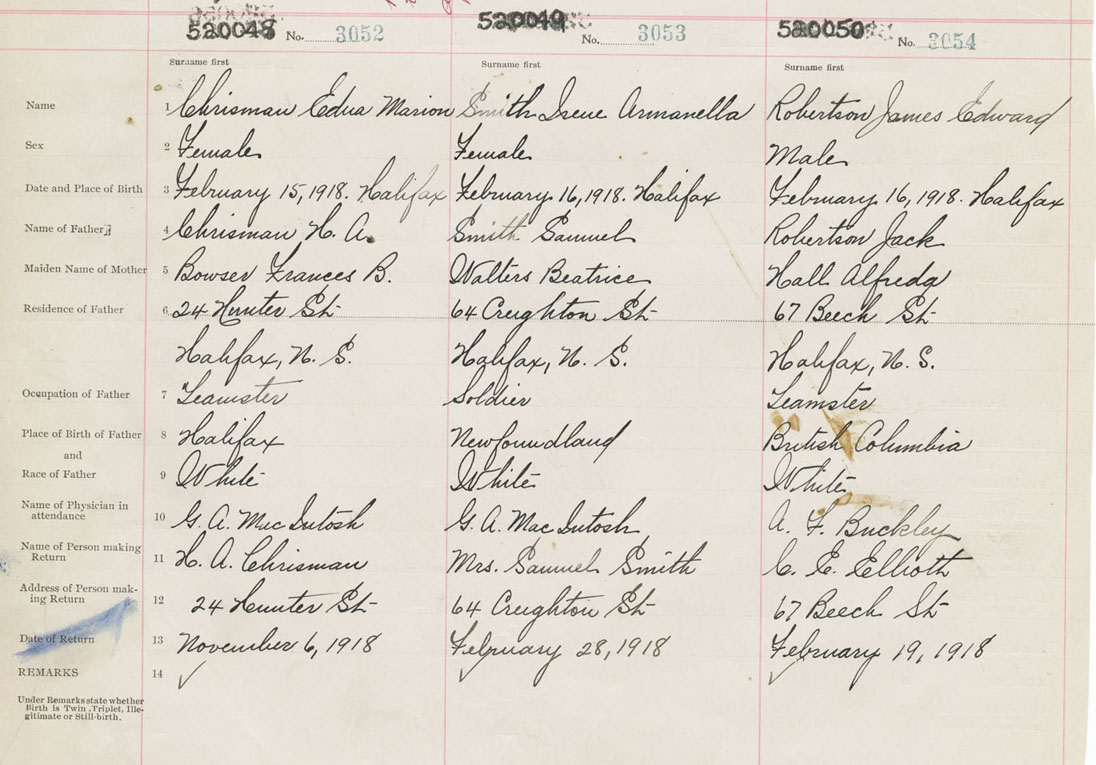 520048 No. 3052 520049 No. 3053 520050 No. 3054
Surname first Surname first Surname first
Name 1 Chrisman Edna Marion Smith Irene Armanella Robertson James Edward
Sex 2 Female Female Male
Date and Place of Birth 3 February 15, 1918. Halifax February 16, 1918. Halifax February 16, 1918. Halifax
Name of Father 4 Chrisman H. A. Smith Samuel Robertson Jack
Maiden Name of Mother 5 Bowser Frances B. Walters Beatrice Hall Alfreda
Residence of Father 6 24 Hunter St 64 Creighton St 67 Beech St
Halifax, N. S. Halifax, N. S. Halifax, N. S.
Occupation of Father 7 Teamster Soldier Teamster
Place of Birth of Father 8 Halifax Newfoundland British Columbia
and
Race of Father 9 White White White
Name of Physician in
attendance 10 G. A. MacIntosh G. A. MacIntosh A. F. Buckley
Name of Person making
Return 11 H. A. Chrisman Mrs. Samuel Smith C. E. Ellioth
Address of Person mak-
ing Return 12 24 Hunter St 64 Creighton St 67 Beech St
Date of Return 13 November 6, 1918 February 28, 1918 February 19, 1918
REMARKS 14
Under Remarks state whether
Birth is Twin, Triplet, Ille-
gitimate or Still-birth.